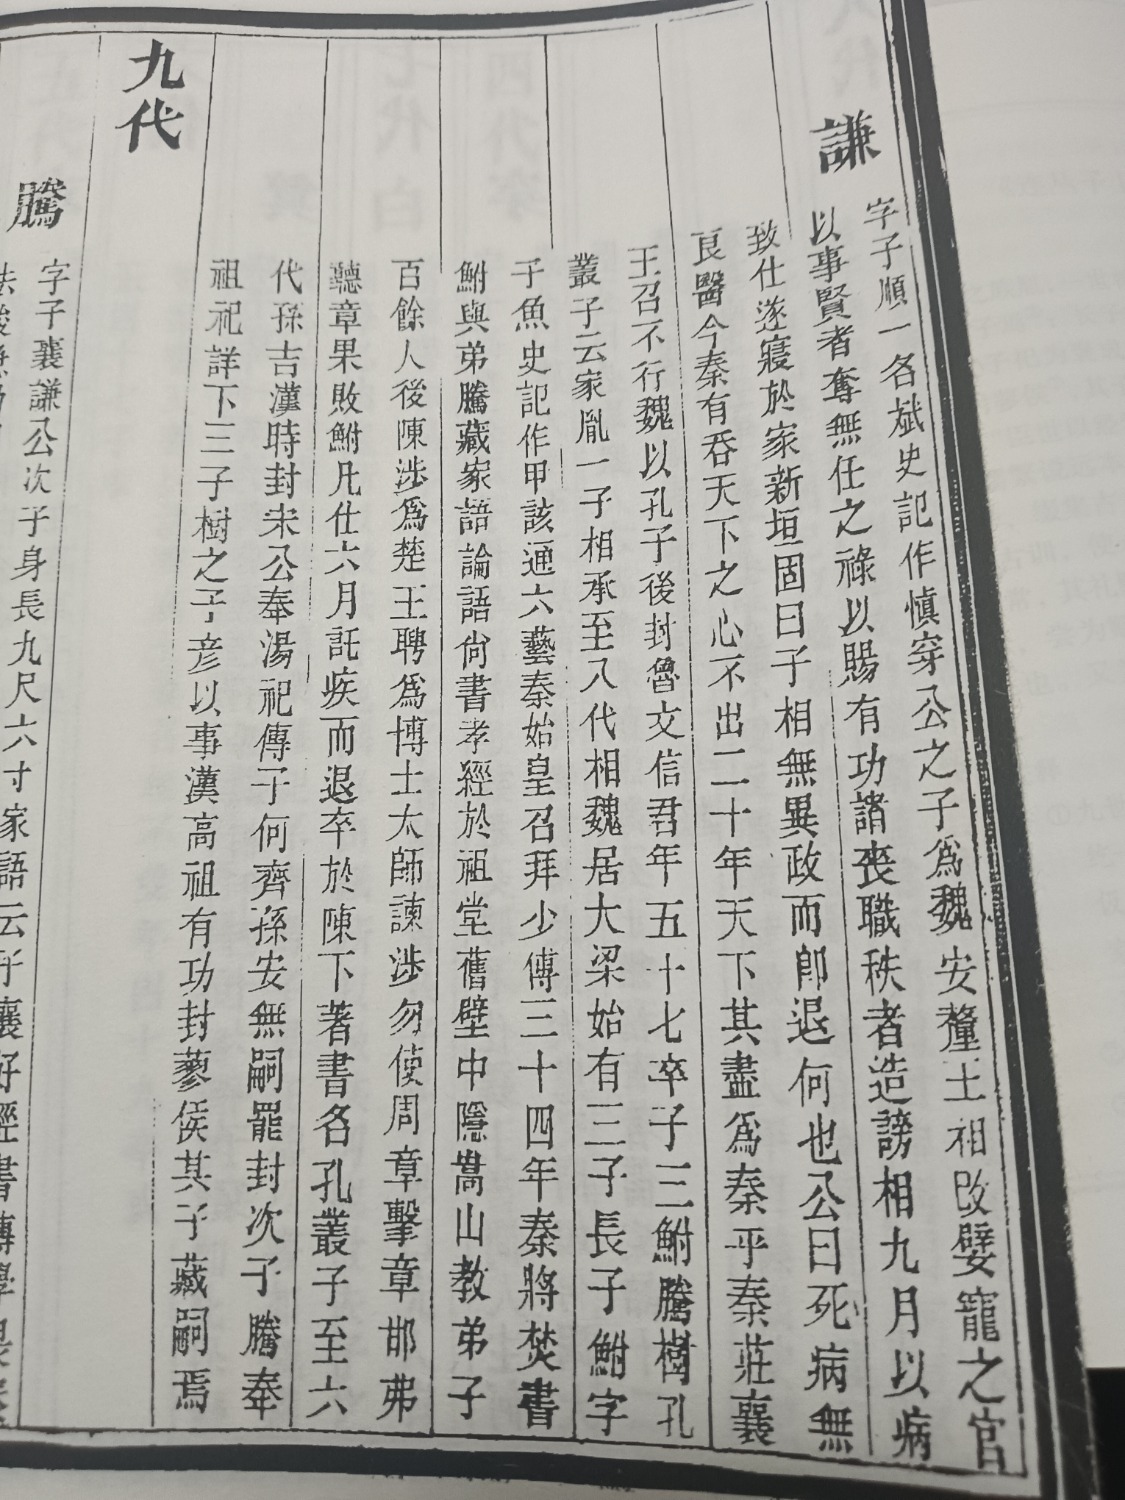 謙
字子順一名斌史記作慎穿公之子爲魏安釐王相改嬖寵之官
以事賢者奪無任之祿以賜有功諸喪職秩者造謗相九月以病
致仕遂寢於家新垣固曰子相無異政而卽退何也公曰死病無
良醫今秦有吞天下之心不出二十年天下其盡爲秦乎秦莊襄
王召不行魏以孔子後封魯文信君年五十七卒子三鮒騰樹孔
叢子云家胤一子相承至八代相魏居大梁始有三子長子鮒字
子魚史記作甲該通六藝秦始皇召拜少傅三十四年秦將焚書
鮒與弟騰藏家語論語尚書孝經於祖堂舊壁中隱嵩山教弟子
百餘人後陳涉爲楚王聘爲博士太師諫涉勿使周章擊章邯弗
聽章果敗鮒凡仕六月託疾而退卒於陳下著書名孔叢子至六
代孫吉漢時封宋公奉湯祀傳子何齊孫安無嗣罷封次子騰奉
祖祀詳下三子樹之子彦以事漢高祖有功封蓼侯其子藏嗣焉
九代
騰
字子襄謙公次子身長九尺六寸家語云子襄好經書博學